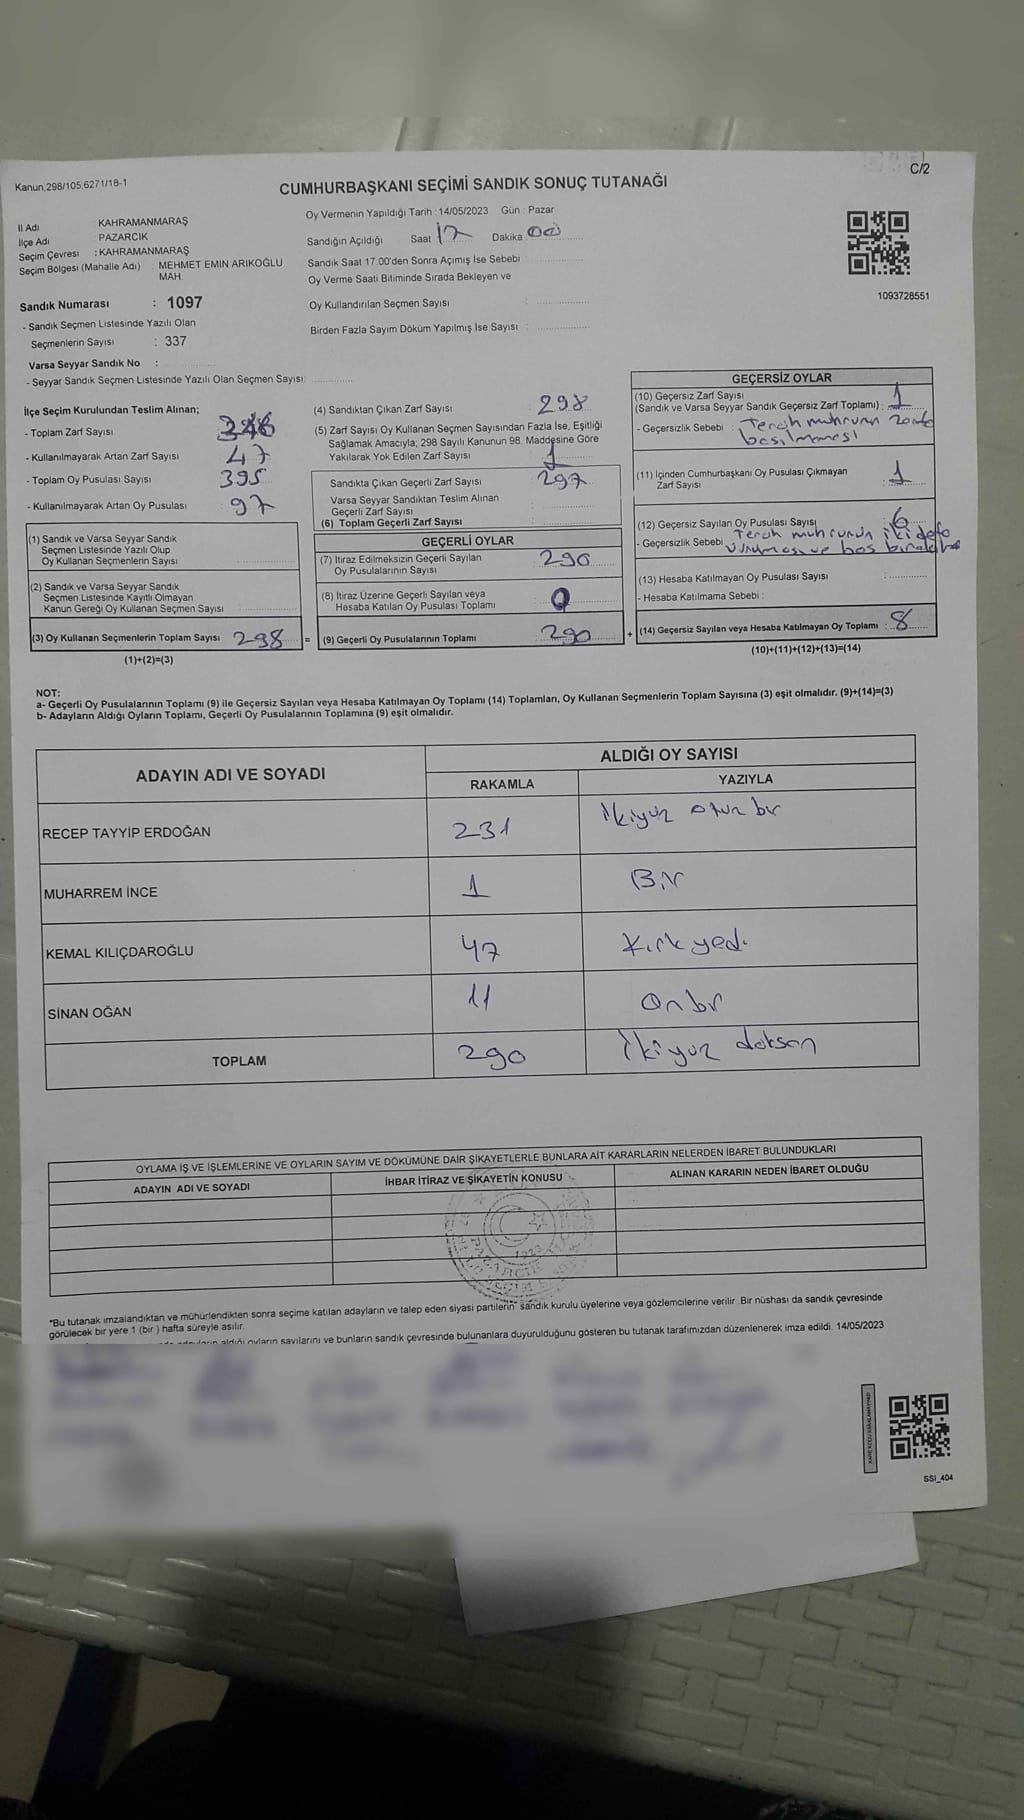 Kanun,298/105,6271/18-1
C/2
CUMHURBAŞKANI SEÇİMİ SANDIK SONUÇ TUTANAĞI
İl Adı : KAHRAMANMARAŞ
İlçe Adı : PAZARCIK
Seçim Çevresi : KAHRAMANMARAŞ
Seçim Bölgesi (Mahalle Adı) : MEHMET EMİN ARIKOĞLU
MAH.
Sandık Numarası : 1097
- Sandık Seçmen Listesinde Yazılı Olan
Seçmenlerin Sayısı : 337
Varsa Seyyar Sandık No :
- Seyyar Sandık Seçmen Listesinde Yazılı Olan Seçmen Sayısı:
Oy Vermenin Yapıldığı Tarih : 14/05/2023 Gün : Pazar
Sandığın Açıldığı Saat 17 Dakika 00
Sandık Saat 17:00'den Sonra Açılmış İse Sebebi :
Oy Verme Saati Bitiminde Sırada Bekleyen ve
Oy Kullandırılan Seçmen Sayısı :
Birden Fazla Sayım Döküm Yapılmış İse Sayısı :
1093728551
İlçe Seçim Kurulundan Teslim Alınan;
- Toplam Zarf Sayısı
- Kullanılmayarak Artan Zarf Sayısı 47
- Toplam Oy Pusulası Sayısı 395
- Kullanılmayarak Artan Oy Pusulası 97
(1) Sandık ve Varsa Seyyar Sandık
Seçmen Listesinde Yazılı Olup
Oy Kullanan Seçmenlerin Sayısı :
(2) Sandık ve Varsa Seyyar Sandık
Seçmen Listesinde Kayıtlı Olmayan
Kanun Gereği Oy Kullanan Seçmen Sayısı :
(3) Oy Kullanan Seçmenlerin Toplam Sayısı 298 =
(1)+(2)=(3)
(4) Sandıktan Çıkan Zarf Sayısı 298
(5) Zarf Sayısı Oy Kullanan Seçmen Sayısından Fazla İse, Eşitliği
Sağlamak Amacıyla; 298 Sayılı Kanunun 98. Maddesine Göre
Yakılarak Yok Edilen Zarf Sayısı 1
Sandıkta Çıkan Geçerli Zarf Sayısı : 297
Varsa Seyyar Sandıktan Teslim Alınan
Geçerli Zarf Sayısı :
(6) Toplam Geçerli Zarf Sayısı :
GEÇERLİ OYLAR
(7) İtiraz Edilmeksizin Geçerli Sayılan
Oy Pusulalarının Sayısı : 290
(8) İtiraz Üzerine Geçerli Sayılan veya
Hesaba Katılan Oy Pusulası Toplamı : 0
(9) Geçerli Oy Pusulalarının Toplamı : 290 +
GEÇERSİZ OYLAR
(10) Geçersiz Zarf Sayısı
(Sandık ve Varsa Seyyar Sandık Geçersiz Zarf Toplamı) : 1
- Geçersizlik Sebebi : Tercih mührünün zarfa
basılmaması
(11) İçinden Cumhurbaşkanı Oy Pusulası Çıkmayan
Zarf Sayısı : 1
(12) Geçersiz Sayılan Oy Pusulası Sayısı : 6
- Geçersizlik Sebebi Tercih mührünün iki defa
vurulması ve boş
(13) Hesaba Katılmayan Oy Pusulası Sayısı :
- Hesaba Katılmama Sebebi :
(14) Geçersiz Sayılan veya Hesaba Katılmayan Oy Toplamı : 8
(10)+(11)+(12)+(13)=(14)
NOT:
a- Geçerli Oy Pusulalarının Toplamı (9) ile Geçersiz Sayılan veya Hesaba Katılmayan Oy Toplamı (14) Toplamları, Oy Kullanan Seçmenlerin Toplam Sayısına (3) eşit olmalıdır. (9)+(14)=(3)
b- Adayların Aldığı Oyların Toplamı, Geçerli Oy Pusulalarının Toplamına (9) eşit olmalıdır.
ADAYIN ADI VE SOYADI
ALDIĞI OY SAYISI
RAKAMLA YAZIYLA
RECEP TAYYİP ERDOĞAN 231 ikiyüz otuz bir
MUHARREM İNCE 1 Bir
KEMAL KILIÇDAROĞLU 47 Kırk yedi
SİNAN OĞAN 11 onbir
TOPLAM 290 ikiyüz doksan
OYLAMA İŞ VE İŞLEMLERİNE VE OYLARIN SAYIM VE DÖKÜMÜNE DAİR ŞİKAYETLERLE BUNLARA AİT KARARLARIN NELERDEN İBARET BULUNDUKLARI
ADAYIN ADI VE SOYADI İHBAR İTİRAZ VE ŞİKAYETİN KONUSU ALINAN KARARIN NEDEN İBARET OLDUĞU
1923
PAZARCIK
*Bu tutanak imzalandıktan ve mühürlendikten sonra seçime katılan adayların ve talep eden siyasi partilerin sandık kurulu üyelerine veya gözlemcilerine verilir. Bir nüshası da sandık çevresinde
görülecek bir yere 1 (bir ) hafta süreyle asılır.
aldığı oyların sayılarını ve bunların sandık çevresinde bulunanlara duyurulduğunu gösteren bu tutanak tarafımızdan düzenlenerek imza edildi. 14/05/2023
SSI_404